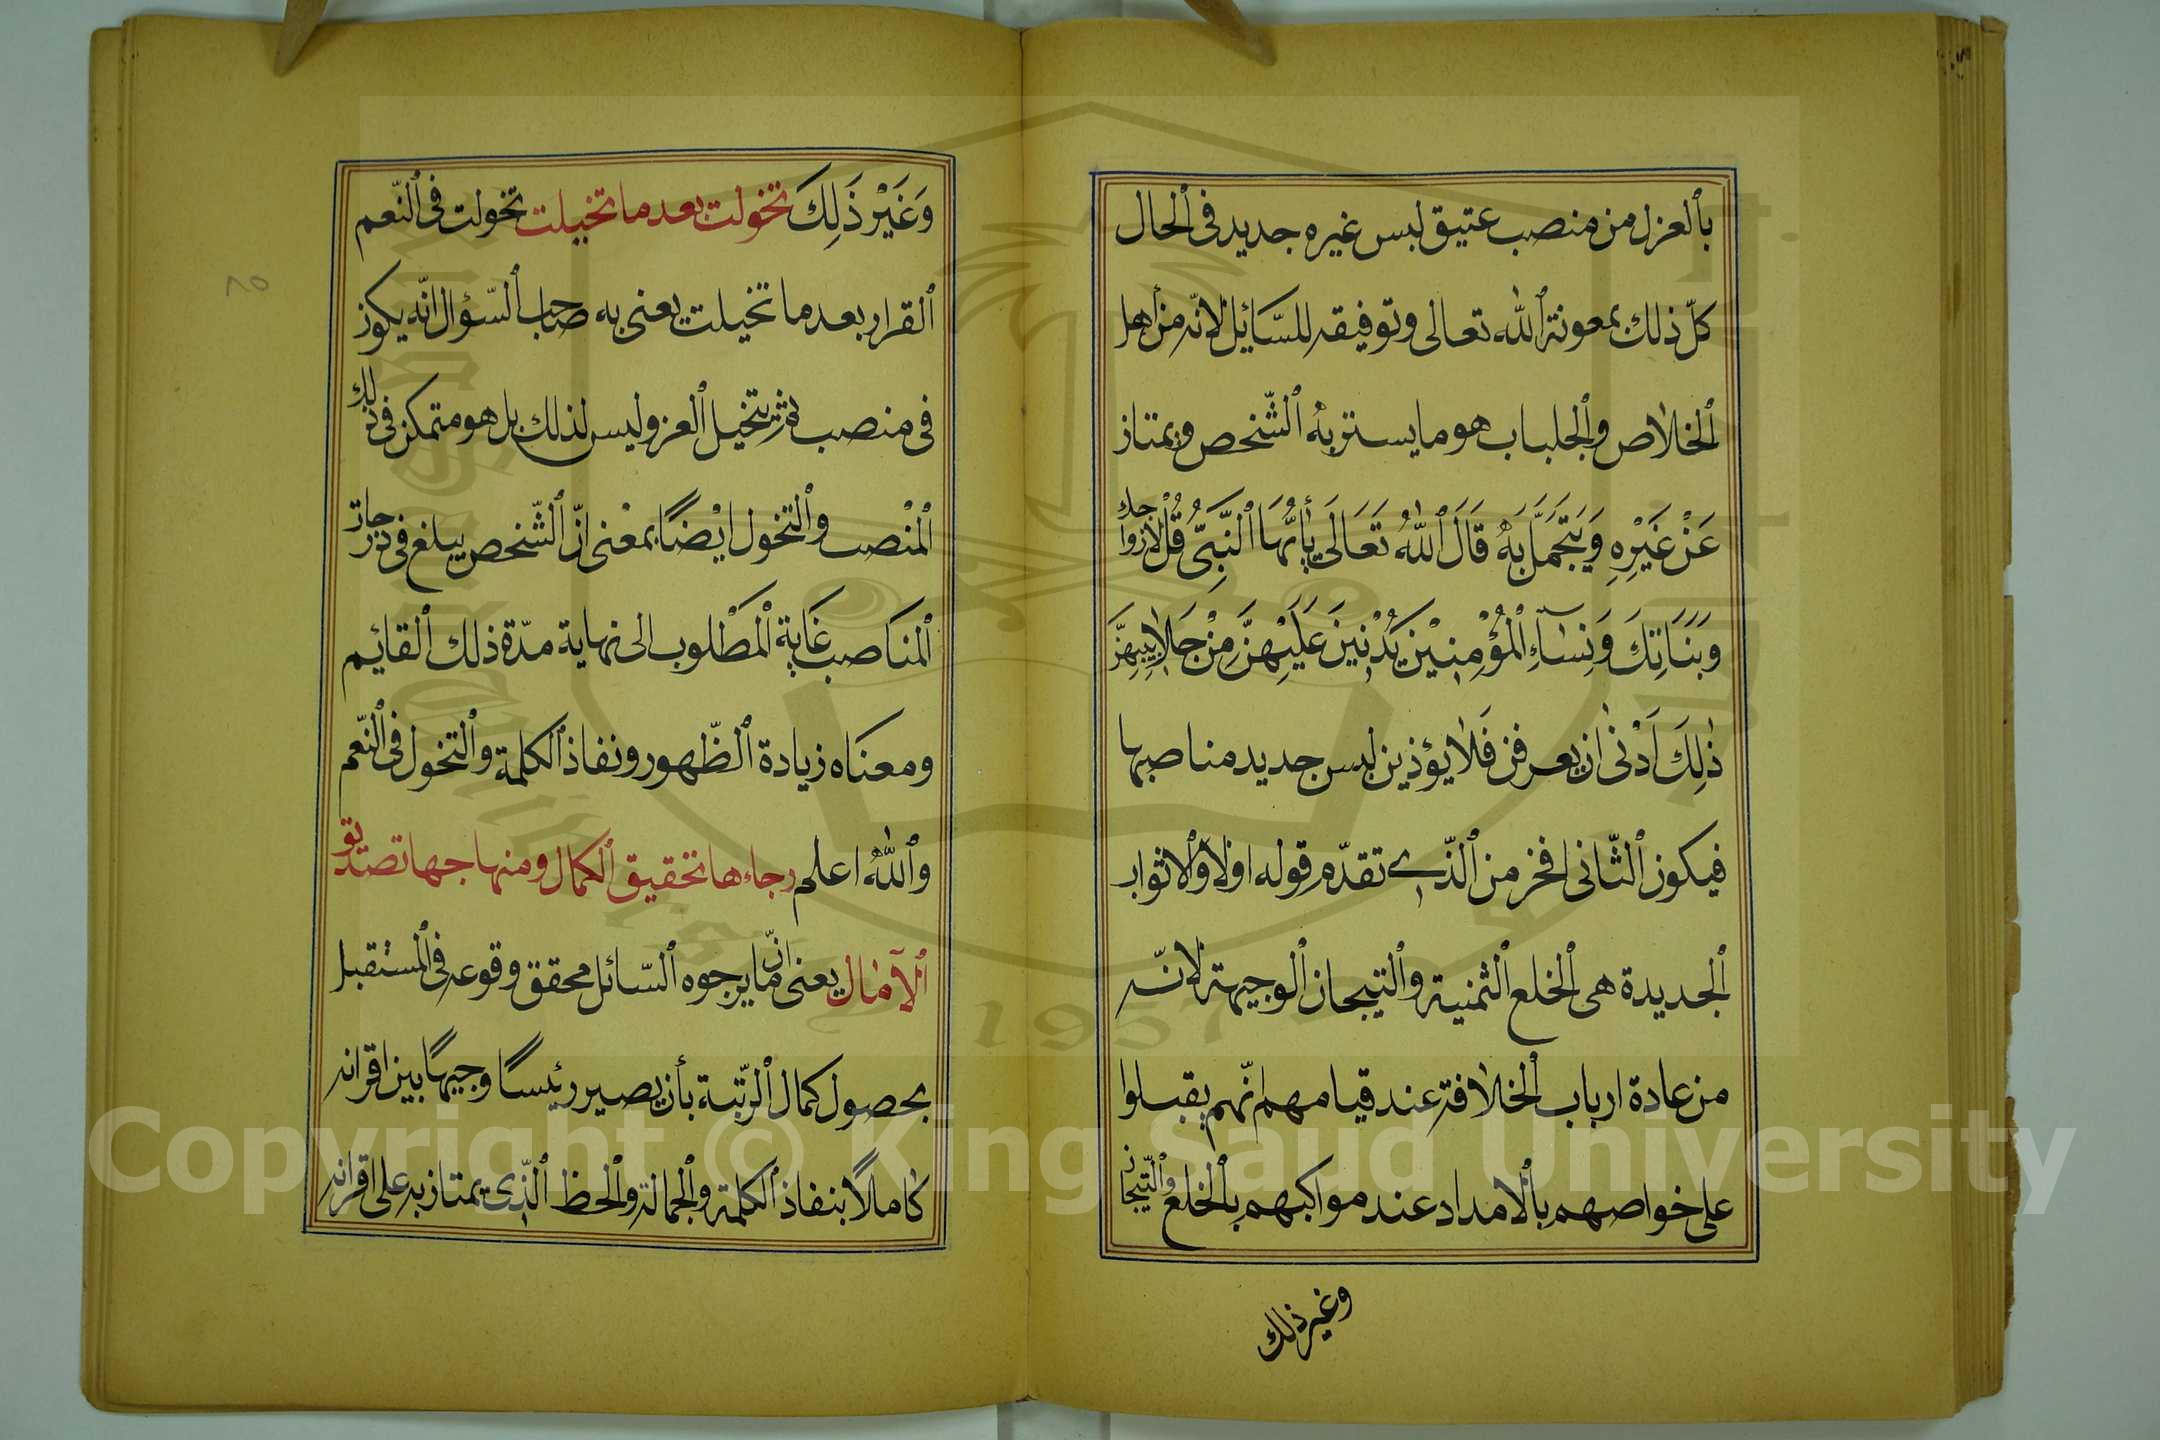 بالعزل من منصب عتيق لبس غيره جديد في الحال
كلّ ذلك بمعونة الله تعالى وتوفيقه للسّائل لانّه من أهل
الخلاص والجلباب هو ما يستتر به الشّخص ويمتاز
عَنْ غَيْرِهِ وَيَتَجَمَّل بِهٖ قَالَ اللّٰهُ تَعَالَى يٰأيُّهَا النَّبِيُّ قُل لازواجك
وَبَنَاتِكَ وَنِسَآءِ الْمُؤْمِنِيْنَ يُدْنِيْنَ عَلَيْهِنَّ مِنْ جَلابِيبِهِنَّ
ذٰلِكَ اَدْنٰى ان يعرفن فَلا يؤذين لبس جديد مناصبها
فيكون الثّانى افخر من الّذي تقدّم قوله اولا والاثواب
الجديدة هي الخلع الثمنية والتيجان الوجيهة لانّه
من عادة ارباب الخلافة عند قيامهم انّهم يقبلوا
على خواصهم بالامداد عند مواكبهم بالخلع والتّيجان
وغير ذلك
وَغَيْر ذَلِكَ تخولت بعد ما تخيلت تخولت في النّعم
القرار بعد ما تخيلت يعنى به صاحب السّؤال انّه يكون
في منصب ثم يتخيل العز وليس لذلك بل هو متمكن في ذلك
المنْصب والتخول ايْضًا بمعْنى انّ الشّخص يبلغ في درجات
المناصب غَاية المَطْلوب الى نهاية مدّة ذلك القائم
ومعناه زيادة الظّهور ونفاذ الكلمة والتخول في النّعم
والله اعلم رجاءها تحقيق الكمال ومنها جهات تصديق
الآمال يعنى انّ ما يرجوه السّائل محقق وقوعه في المستقبل
بحصول كمال الرّتبة بأن يصير رئيسًا وجيهًا بين اقرانه
كاملًا بنفاذ الكلمة والجمالة والحظ الّذي يمتاز به على اقرانه
Copyright © King Saud University
1957